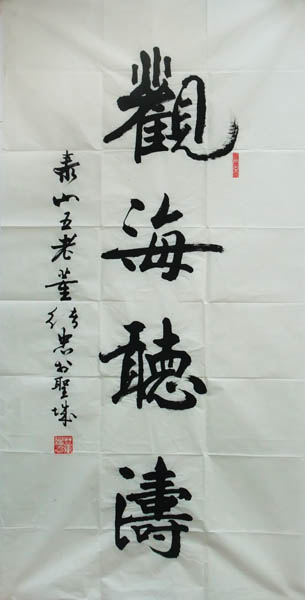 觀海聽濤
泰山五老董傳忠書於聖城